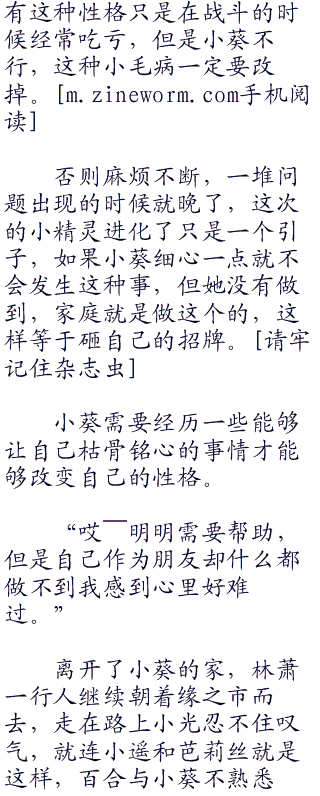 有这种性格只是在战斗的时
候经常吃亏，但是小葵不
行，这种小毛病一定要改
掉。[m.zineworm.com手机阅
读]
否则麻烦不断，一堆问
题出现的时候就晚了，这次
的小精灵进化了只是一个引
子，如果小葵细心一点就不
会发生这种事，但她没有做
到，家庭就是做这个的，这
样等于砸自己的招牌。[请牢
记住杂志虫]
小葵需要经历一些能够
让自己枯骨铭心的事情才能
够改变自己的性格。
“哎——明明需要帮助，
但是自己作为朋友却什么都
做不到我感到心里好难
过。”
离开了小葵的家，林萧
一行人继续朝着缘之市而
去，走在路上小光忍不住叹
气，就连小遥和芭莉丝就是
这样，百合与小葵不熟悉